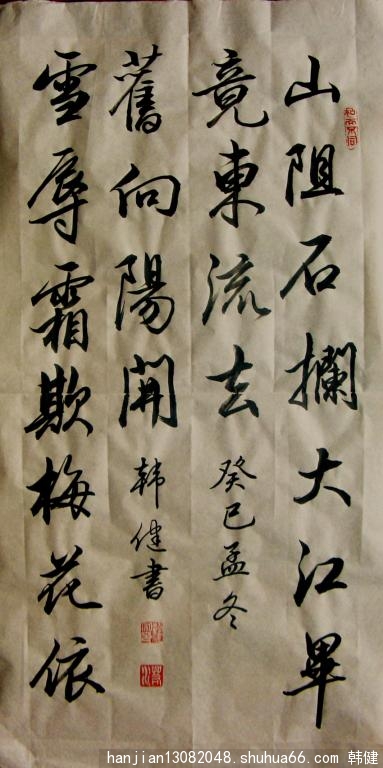 山阻石攔大江畢
竟東流去
癸巳孟冬
雪辱霜欺梅花依
舊向陽開
韩健書
hanjian13082048.shuhua66.com 韩健